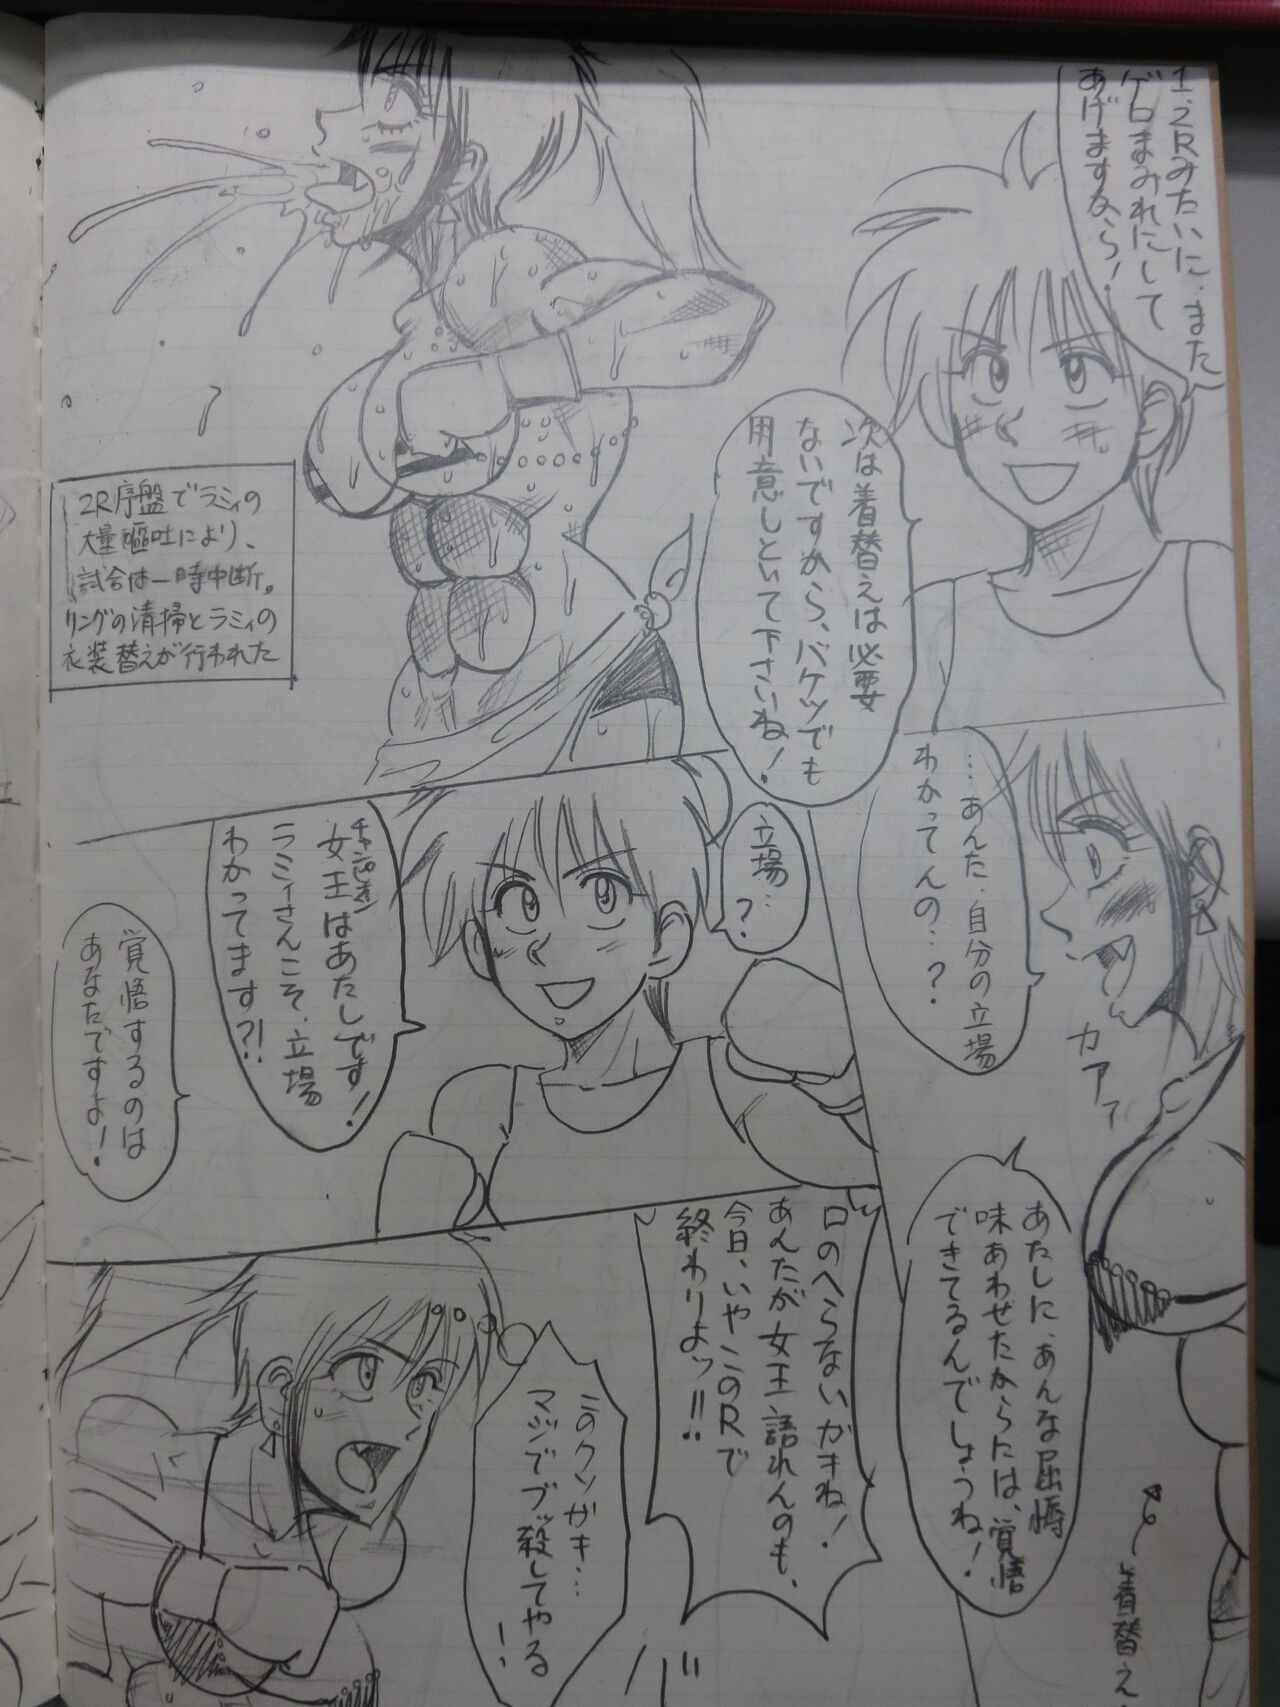 1、2Rみたいに、また
ゲロまみれにして
あげますから!
次は着替えは必要
ないですから、バケツでも
用意しといて下さいね!
2R序盤でラミィの
大量嘔吐により、
試合は一時中断。
リングの清掃とラミィの
衣装替えが行われた
…あんた、自分の立場
わかってんの…?
カアァ
あたしに、あんな屈辱
味あわせたからには、覚悟
できてるんでしょうね!
着替え
立場…
?
チャンピオン
女王はあたしです!
ラミィさんこそ、立場
わかってます?!
覚悟するのは
あなたですよ!
口のへらないガキね!
あんたが女王語れんのも、
今日、いやこのRで
終わりよッ!!
このクソガキ…
マジでブッ殺してやる
!